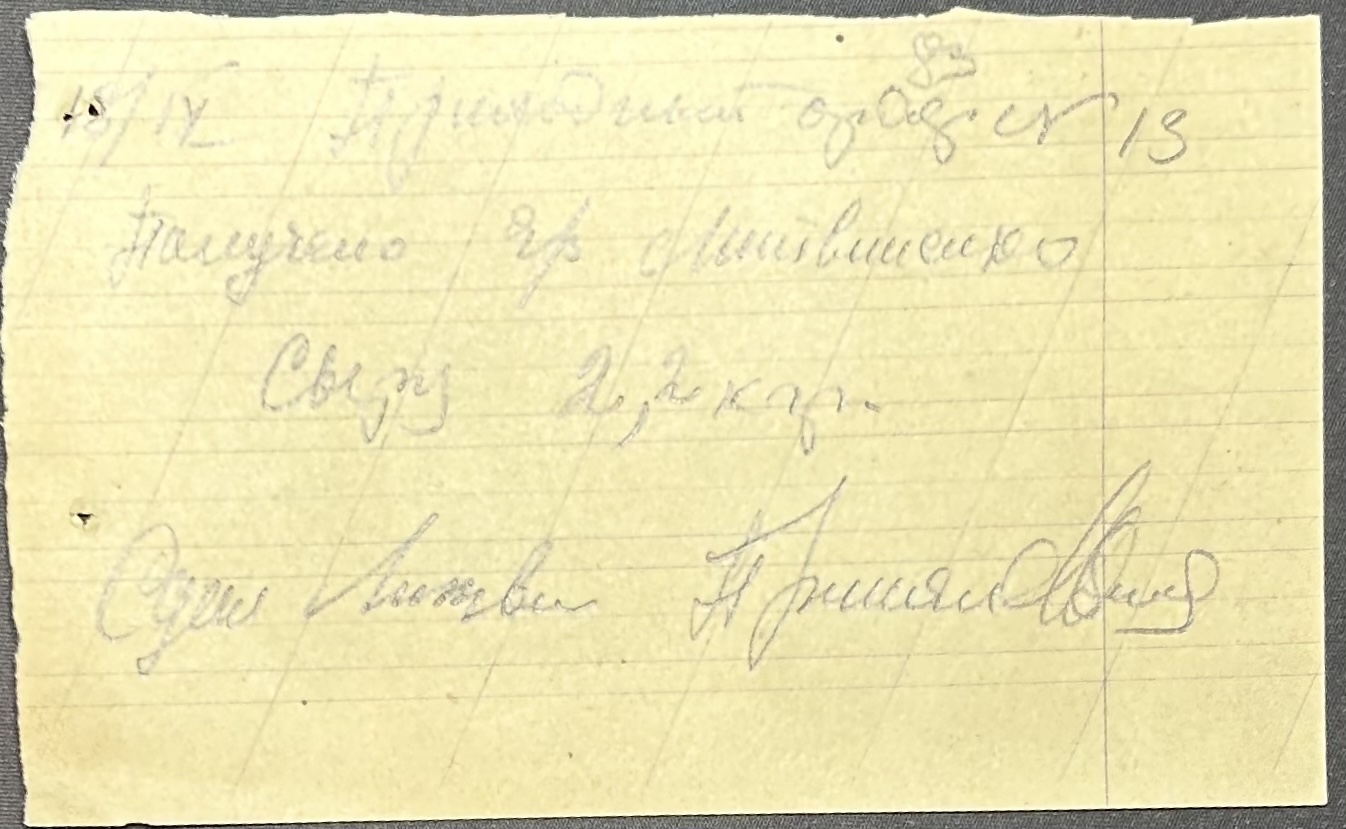 18/IX Приходный орд. № 13
Получено гр Литвиненко
Сыру 2,2 кгр.
Сдал Литви Принял